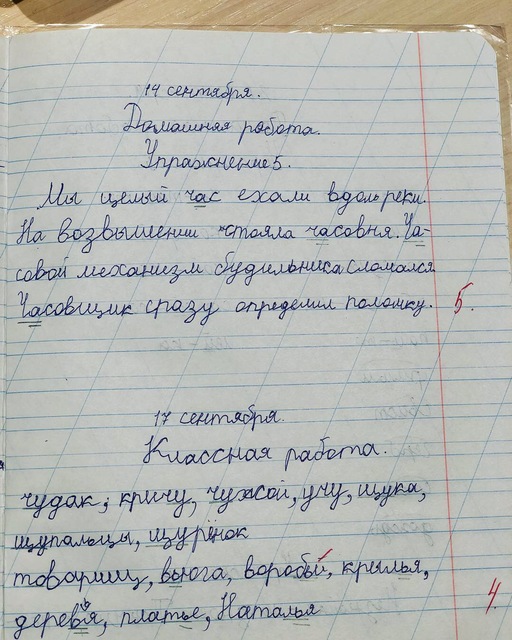 14 сентября.
Домашняя работа.
Упражнение 5.
Мы целый час ехали вдоль реки.
На возвышении стояла часовня. Ча-
совой механизм будильника сломался
Часовщик сразу определил поломку. 5.
17 сентября.
Классная работа.
чудак, кричу, чужой, учу, щука,
щупальцы, щурёнок
товарищ, вьюга, воробьи, крылья,
деревья, платье, Наталья 4.